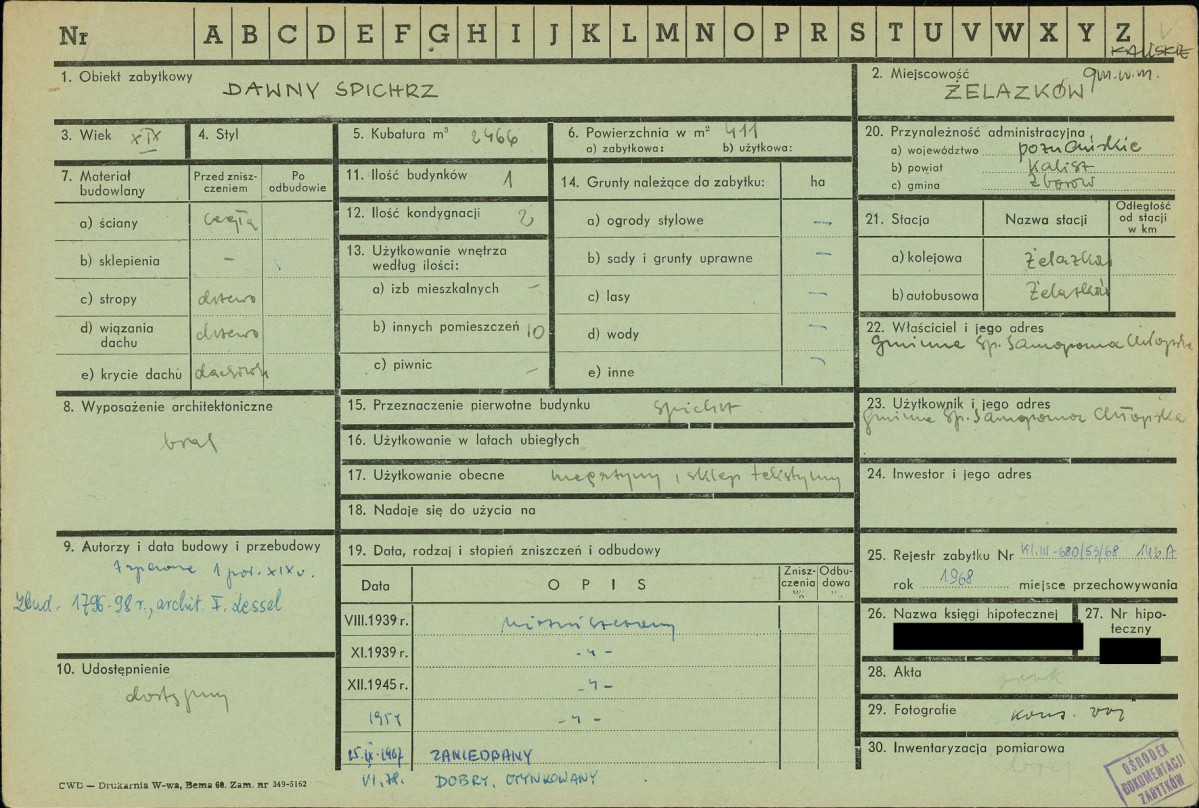 Nr A B C D E F G H I J K L M N O P R S T U V W X Y Z
KALISKIE
1. Obiekt zabytkowy
DAWNY SPICHRZ
2. Miejscowość gm.w.m.
ŻELAZKÓW
3. Wiek XIX
4. Styl
5. Kubatura m³ 2466
6. Powierzchnia w m² 411
a) zabytkowa: b) użytkowa:
20. Przynależność administracyjna
a) województwo poznańskie
b) powiat Kalisz
c) gmina Zborów
7. Materiał budowlany
Przed znisz-
czeniem
Po
odbudowie
a) ściany cegła
b) sklepienia –
c) stropy drzewo
d) wiązania
dachu drzewo
e) krycie dachu dachówka
11. Ilość budynków 1
12. Ilość kondygnacji 2
13. Użytkowanie wnętrza
według ilości:
a) izb mieszkalnych –
b) innych pomieszczeń 10
c) piwnic –
14. Grunty należące do zabytku: ha
a) ogrody stylowe –
b) sady i grunty uprawne –
c) lasy –
d) wody –
e) inne –
21. Stacja Nazwa stacji
Odległość
od stacji
w km
a) kolejowa Żelazków
b) autobusowa Żelazków
22. Właściciel i jego adres
Gminna Sp. Samopomoc Chłopska
8. Wyposażenie architektoniczne
brak
15. Przeznaczenie pierwotne budynku spichrz
16. Użytkowanie w latach ubiegłych
17. Użytkowanie obecne magazyny, sklep tekstylny
18. Nadaje się do użycia na
23. Użytkownik i jego adres
Gminna Sp. Samopomoc Chłopska
24. Inwestor i jego adres
9. Autorzy i data budowy i przebudowy
zapewne 1 poł. XIX w.
Zbud. 1796-98 r., archit. F. Lessel
10. Udostępnienie
dostępny
19. Data, rodzaj i stopień zniszczeń i odbudowy
Data OPIS
Znisz-
czenia
%
Odbu-
dowa
%
VIII.1939 r. nie zniszczony
XI.1939 r. -"-
XII.1945 r. -"-
-"-
25.IX.1967 ZANIEDBANY
VI.78. DOBRY, OTYNKOWANY
25. Rejestr zabytku Nr Kl.III-680/53/68 146A
rok 1968 miejsce przechowywania
26. Nazwa księgi hipotecznej
27. Nr hipo-
teczny
28. Akta
29. Fotografie kons. woj
30. Inwentaryzacja pomiarowa
OŚRODEK
DOKUMENTACJI
ZABYTKÓW
CWD — Drukarnia W-wa, Bema 60. Zam. nr 349-5162